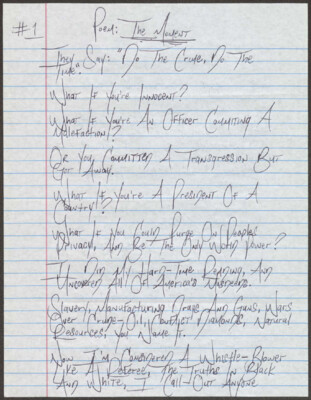 #1 Poem: The Moment
They Say: "Do The Crime, Do The
Time".
What If You're Innocent?
What If You're An Officer Committing A
Malefaction!?
Or You Committed A Transgression But
Got Away.
What If You're A President Of A
Country!?
What If You Could Purge On Peoples
Privacy, And Be The Only With Power?
I Did My Hard-Time Reading, And
Uncovered All Of America's Misdeeds.
Slavery, Manufacturing Drugs And Guns, Wars
Over Crude-Oil, Conflict Diamonds, Natural
Resources, You Name It.
Now I'm Considered A Whistle-Blower
Like A Referee, The Truths In Black
And White, I Call-Out Anyone